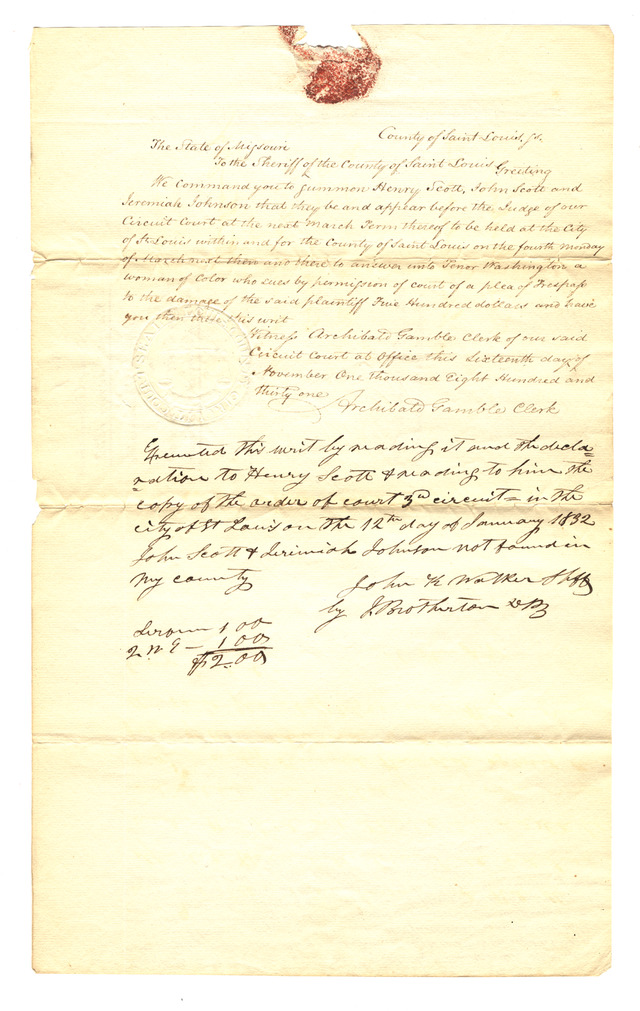 County of Saint Louis, ss.
The State of Missouri
To the Sheriff of the County of Saint Louis Greeting
We command you to summon Henry Scott, John Scott and
Jeremiah Johnson that they be and appear before the Judge of our
Circuit Court at the next March Term thereof to be held at the City
of St Louis within and for the County of Saint Louis on the fourth Monday
of March next then and there to answer unto Tenor Washington a
woman of Color who sues by permission of court of a plea of Trespass
to the damage of the said plaintiff Five Hundred dollars and have
you then there this writ
Witness Archibald Gamble Clerk of our said
Circuit Court at Office this Sixteenth day of
November One Thousand Eight Hundred and
thirty one
Archibald Gamble Clerk
Executed this writ by reading it and the decla=
=ration to Henry Scott & reading to him the
copy of the order of court 3d circuit = in the
city of St Louis on the 12th day of January 1832
John Scott & Jerimiah Johnson not found in
my county
John K Walker Shff
by J Brotherton D
1 00
2 N E - 1 00
$2.00